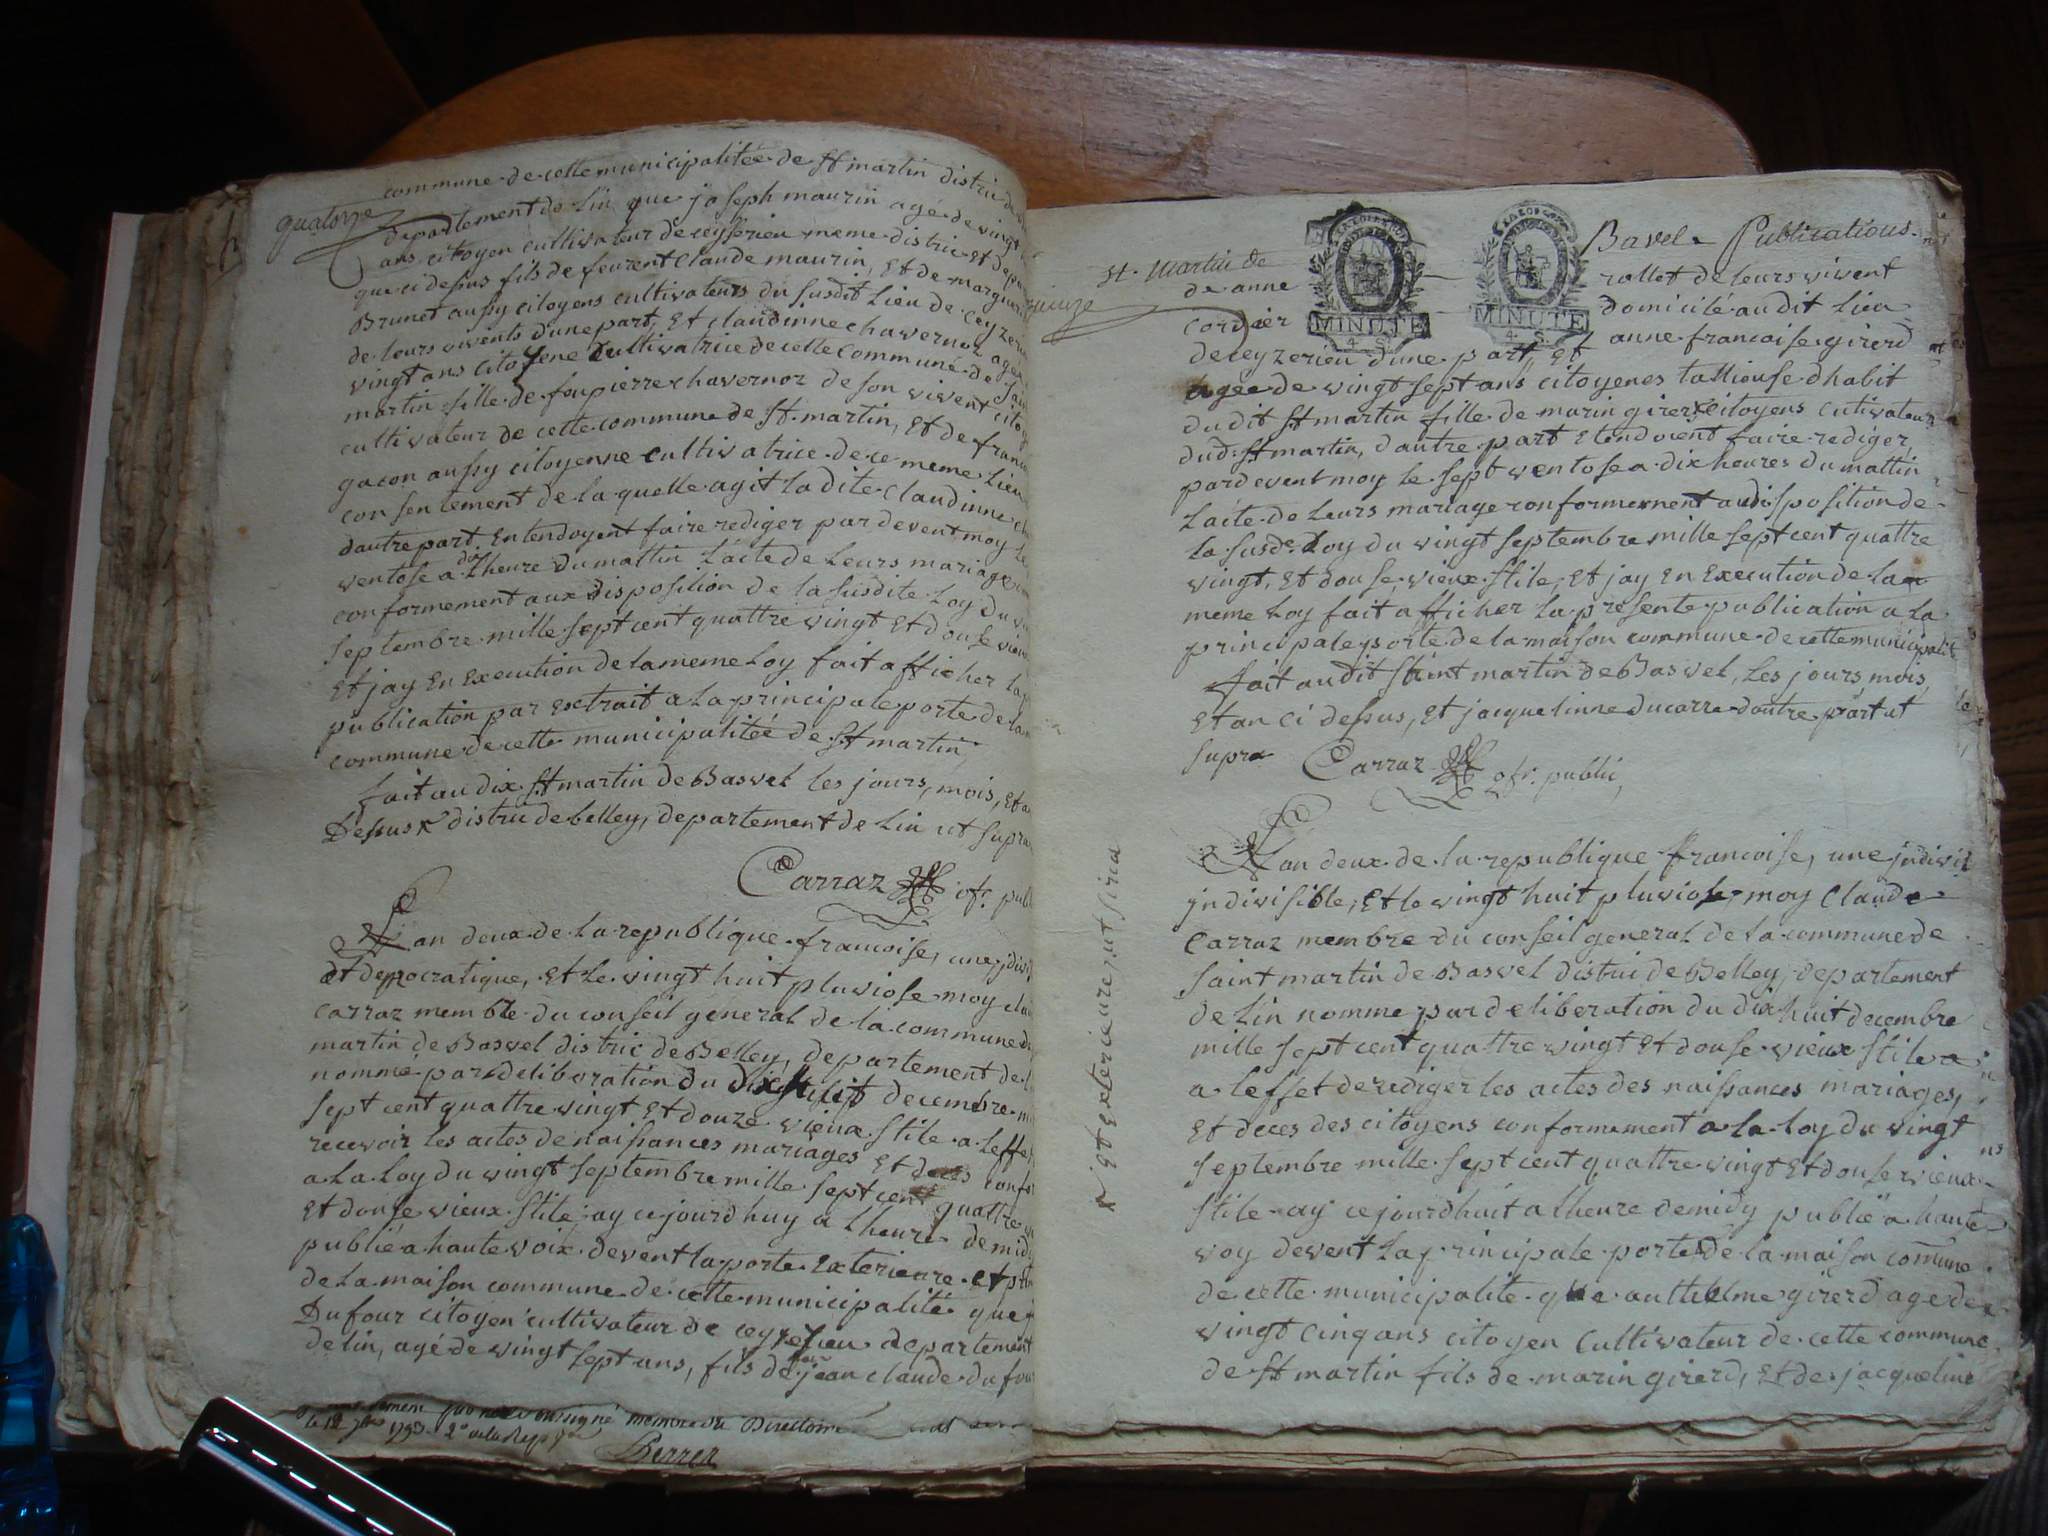 quatorze
commune de cette municipalitée de St martin distric de
departement de Lin que joseph maurin agé de vingt
ans citoyen cultivateur de ceysserieu meme distric et depa
que ci dessus fils de feu rent Claude maurin, Et de margueri
Brunet aussy citoyens cultivateurs du susdit Lieu de Ceyzerieu
de leurs vivents d'une part, Et claudinne chavernoz agée
vingt ans citoyene Cultivatrice de cette commune de Sain
martin fille de feu pierre chavernoz de son vivent citoy
cultivateur de cette commune de St. martin, Et de franc
gacon aussy citoyenne cultivatrice de ce meme Lieu
consentement de la quelle agit la dite Claudinne ch
dautre part, Entendoyent faire rediger par devent moy le
ventose a dix Lheure du mattin L'acte de Leurs mariage
conformement aux disposition de la susdite Loy du v
septembre mille sept cent quattre vingt Et douse vieux
Et jay En Execution de la meme Loy fait afficher la p
publication par Extrait a La principale porte de la m
commune de cette municipalitée de St martin
fait au dix St martin de Basvel les jours, mois, Et an
Dessus x distric de belley, departement de Lin ut supra
Carraz of. publ
Lan deux de La republique francoise, une jndivi
et depocratique, Et le vingt huit pluviose moy clau
Carraz membre du conseil général de la commune de
martin de Basvel distric de Belley, departement de L
nommé par deliberation du dix huit decembre mi
sept cent quattre vingt Et douze vieux stile a leffe
recevoir les actes de naissances mariages Et deces confor
a La Loy du vingt septembre mille sept cent quattre
Et douse vieux stile jay ce jourdhuy a Lheure de midy
publié a haute voix devent la porte Exterieure et p
de La maison commune de cette municipalité que
Dufour citoyen cultivateur de ceyzerieu departement
de lin, agé de vingt sept ans, fils de jean claude dufou
soussigné membre du Directoire
le 12 1793. 2e de la Rep
quinze
x Et Exterieure, ut sira
St. Martin de
Bavel Publications
MINUTE
4. S
MINUTE
4. S
de anne
rollet de leurs vivent
cordier
domicilé audit Lieu
de ceyzerieu dune part, Et
anne francoise girerd
agée de vingt sept ans citoyenes tallieuse dhabit
du dit St martin fille de marin girerd citoyens cutivateur
dud. St martin, dautre part Etendoient faire rediger
par devent moy le sept ventose a dix heures du mattin
Lacte de Leurs mariage conformement au disposition de
La susde. Loy du vingt septembre mille sept cent quattre
vingt, Et douse vieux stile, Et jay En Execution de la
meme Loy fait afficher La presente publication a La
principale porte de la maison commune de cette municipalité
fait audit St martin de Basvel, Les jours, mois,
Et an ci dessus, Et jacquelinne ducarre dautre part ut
supra Carraz ofr. public,
Lan deux de la republique francoise, une jndivi
jndivisible, Et le vingt huit pluviose, moy Claude
Carraz membre du conseil general de la commune de
Saint martin de Basvel distric de Belley, departement
de Lin nomme par deliberation du dix huit decembre
mille sept cent quattre vingt Et douse vieux stile
a leffet de rediger les actes des naissances mariages,
Et deces des citoyens conformement a la Loy du vingt
septembre mille sept cent quattre vingt Et douse vieux
stile ay ce jourdhuit a lheure de midy publié a haute
voy devent La principale porte de la maison comune
de cette municipalite que anthelme girerd agé de
vingt cinq ans citoyen cultivateur de cette commune
de St martin fils de marin girerd, Et de jacqueline